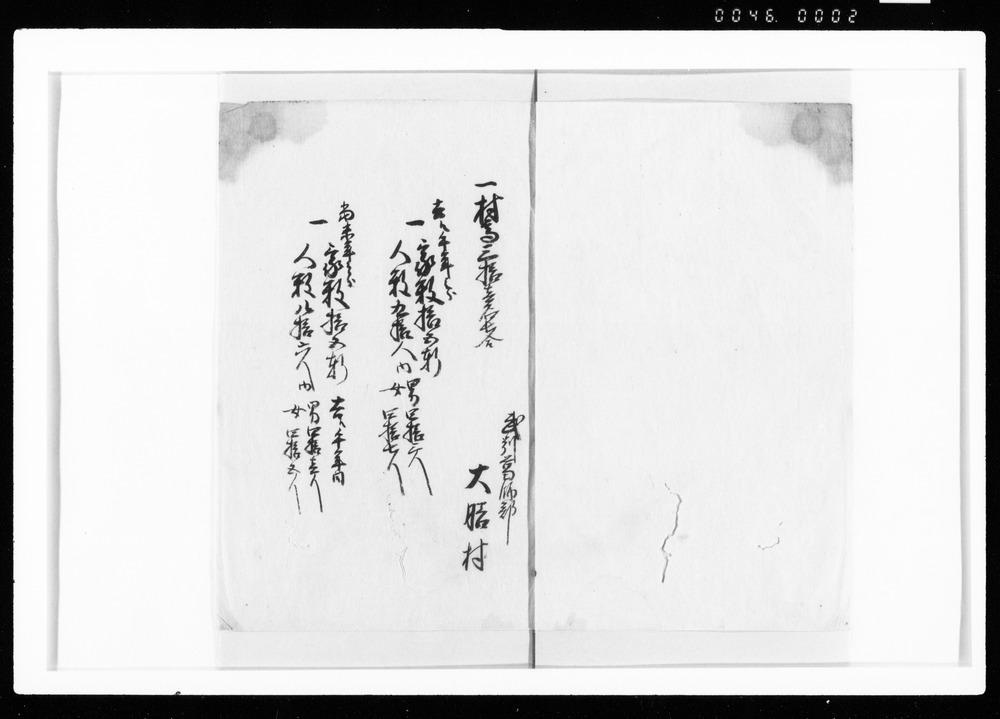 武州葛飾郡
大膳村
一村高三拾壱石
去ル午年分
一家数拾五軒
人数九拾人内 男四拾
女四拾七人
当未年分
一家数拾五軒 去ル午年同
人数八拾六人内 男四拾壱人
女四拾五人
0046 0002